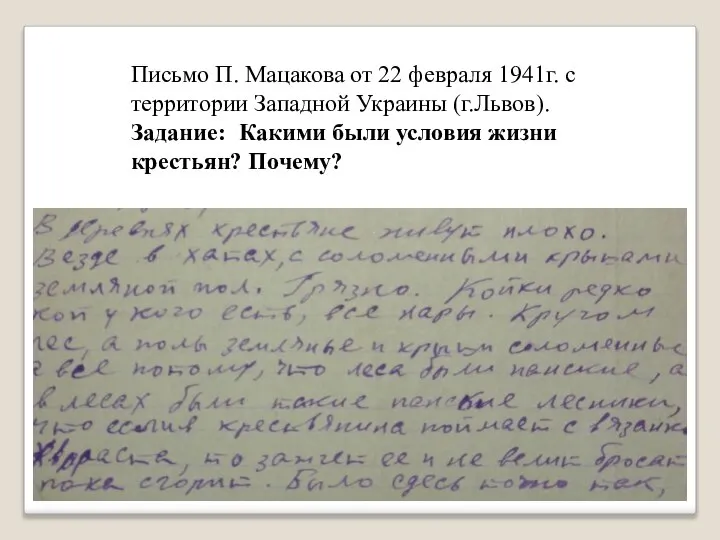 Письмо П. Мацакова от 22 февраля 1941г. с
территории Западной Украины (г.Львов).
Задание: Какими были условия жизни
крестьян? Почему?
В деревнях крестьяне живут плохо.
Везде в хатах, с соломенными крышами
земляной пол. Грязно. Койки редко
кой у кого есть, все нары. Кругом
лес, а полы земляные и крыши соломенные
а все потому, что леса были панские, а
в лесах были такие панские лесники,
что если крестьянина поймает с вязанкой
хвораста, то зажгет ее и не велит бросат
пока сгорит. Было сдесь точно так,